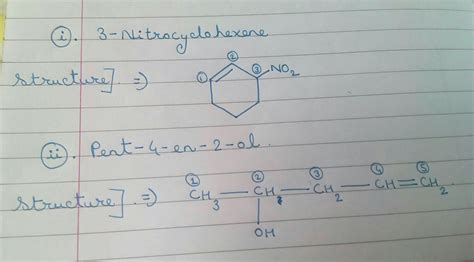 (i). 3-Nitrocyclohexene
Structure] ⇒ ① ② ③ NO₂
(ii). Pent-4-en-2-ol.
① ② ③ ④ ⑤
Structure] ⇒ CH₃ — CH — CH₂ — CH = CH₂
OH